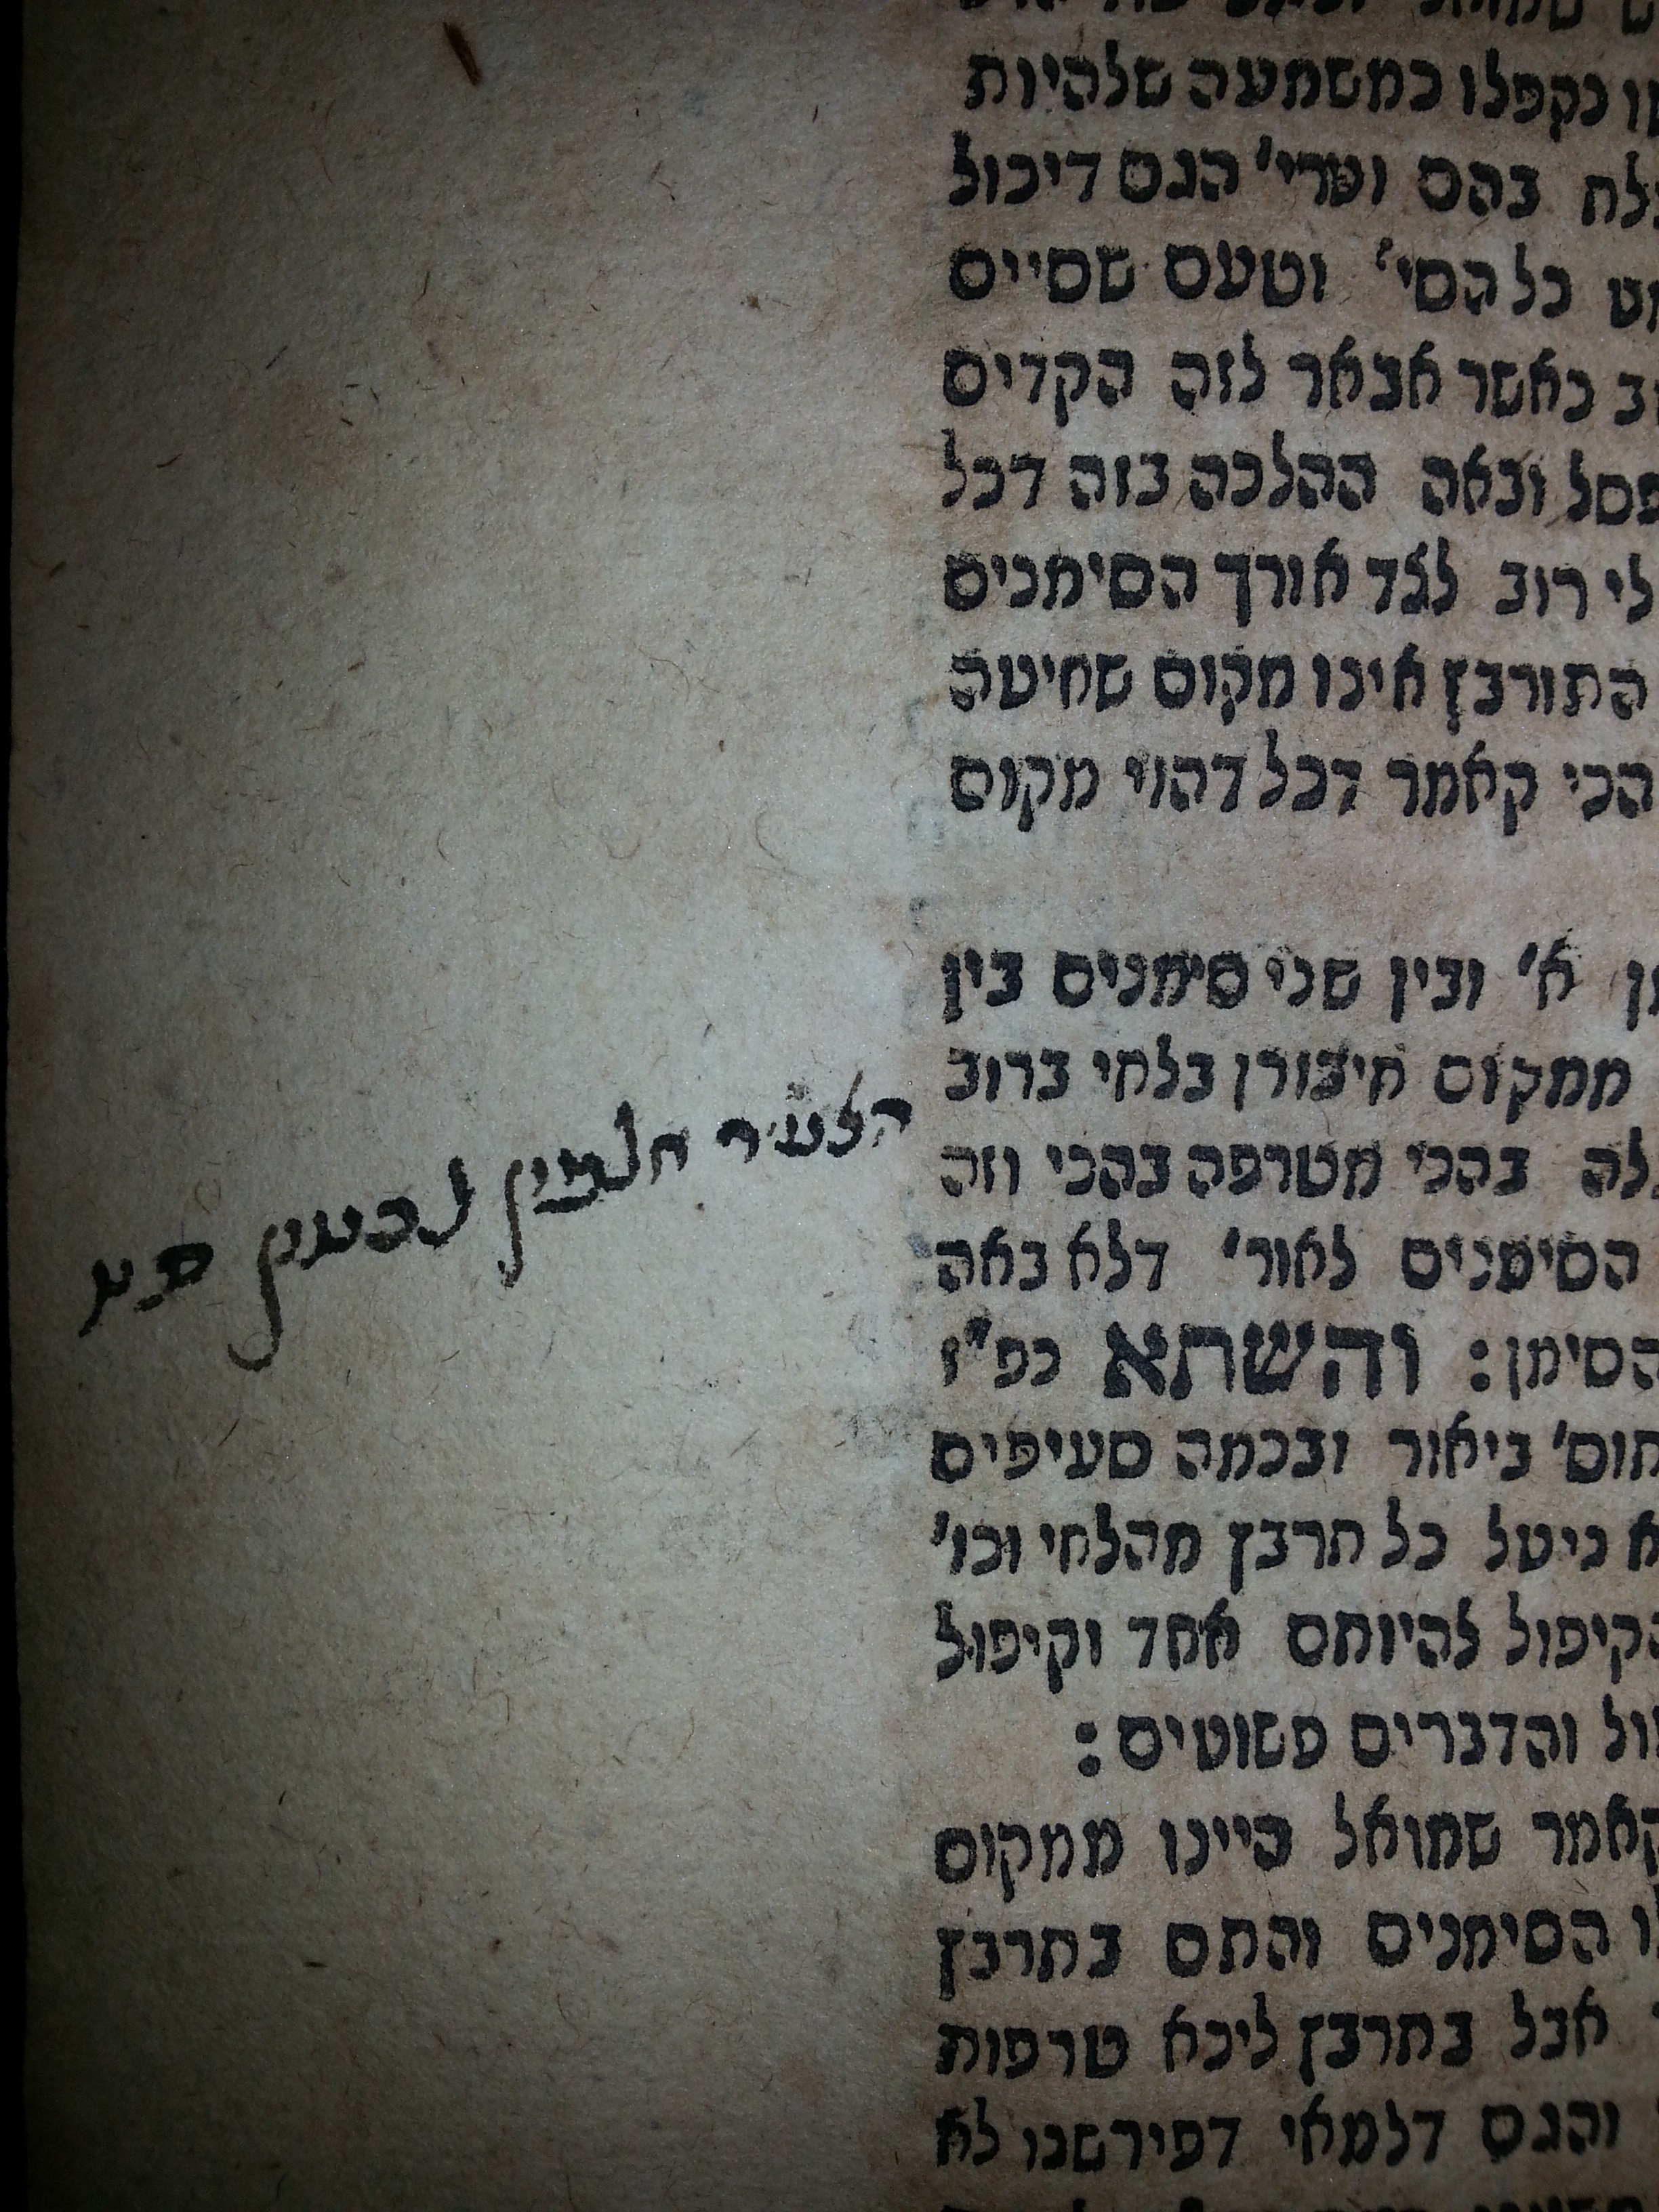 נקפלו כמשמעה שלהיות
בהם ופרי' הגם דיכול
כל הסי' וטעם שסיים
כאשר אבאר לזה הקדים
ובאה ההלכה בזה דכל
לי רוב לצד אורך הסימנים
התורבץ אינו מקום שחיטה
הכי קאמר דכל דהוי מקום
א' ובין שני סימנים בין
ממקום חיבורן בלחי ברוב
בהכי מטרפה בהכי וזה
הסימנים לאור' דלא באה
הצעיר
הסימן: והשתא כפ"ז
ביאור ובכמה סעיפים
ניטל כל תרבץ מהלחי וכו'
הקיפול להיותם אחד וקיפול
והדברים פשוטים:
קאמר שמואל היינו ממקום
הסימנים והתם בתרבץ
אבל בתרבץ ליכא טרפות
והגם דלמאי דפירשנו לא